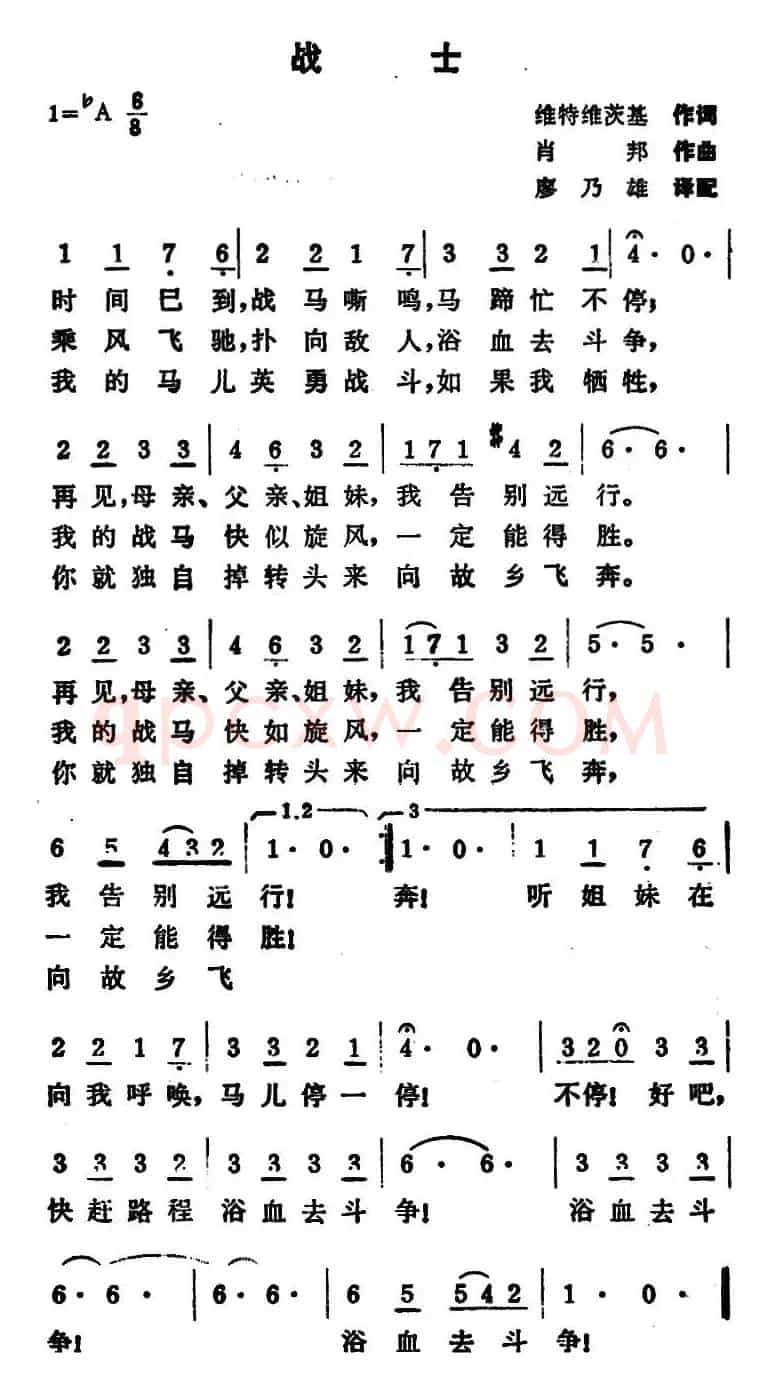 战 士
1=♭A 6/8
维特维茨基 作词
肖 邦 作曲
廖乃雄 译配
1 1 7 6 | 2 2 1 7 | 3 3 2 1 | 4· 0· |
时间已到,战马嘶鸣,马蹄忙不停;
乘风飞驰,扑向敌人,浴血去斗争,
我的马儿英勇战斗,如果我牺牲,
2 2 3 3 | 4 6 3 2 | 1 7 1 #4 2 | 6· 6· |
再见,母亲、父亲、姐妹,我告别远行。
我的战马快似旋风,一定能得胜。
你就独自掉转头来向故乡飞奔。
2 2 3 3 | 4 6 3 2 | 1 7 1 3 2 | 5· 5· |
再见,母亲、父亲、姐妹,我告别远行,
我的战马快如旋风,一定能得胜,
你就独自掉转头来向故乡飞奔,
1.2 3
6 5 4 3 2 | 1· 0· :| 1· 0· | 1 1 7 6 |
我告别远行! 奔! 听姐妹在
一定能得胜!
向故乡飞
2 2 1 7 | 3 3 2 1 | 4· 0· | 3 2 0 3 3 |
向我呼唤,马儿停一停! 不停!好吧,
3 3 3 2 | 3 3 3 3 | 6· 6· | 3 3 3 3 |
快赶路程浴血去斗争! 浴血去斗
6· 6· | 6· 6· | 6 5 5 4 2 | 1· 0· ‖
争! 浴血去斗争!
qpcxw.com